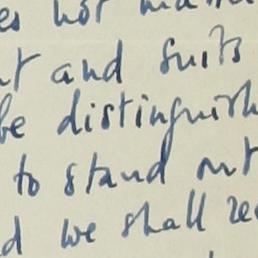 es not ma
nt and suits
be distinguish
to stand out
d we shall re